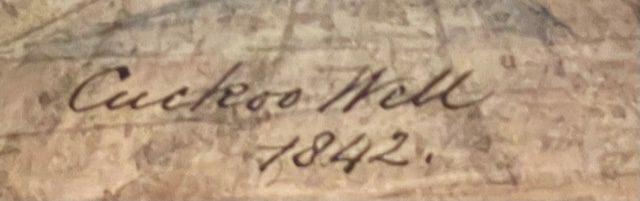 Cuckoo Well
1842.